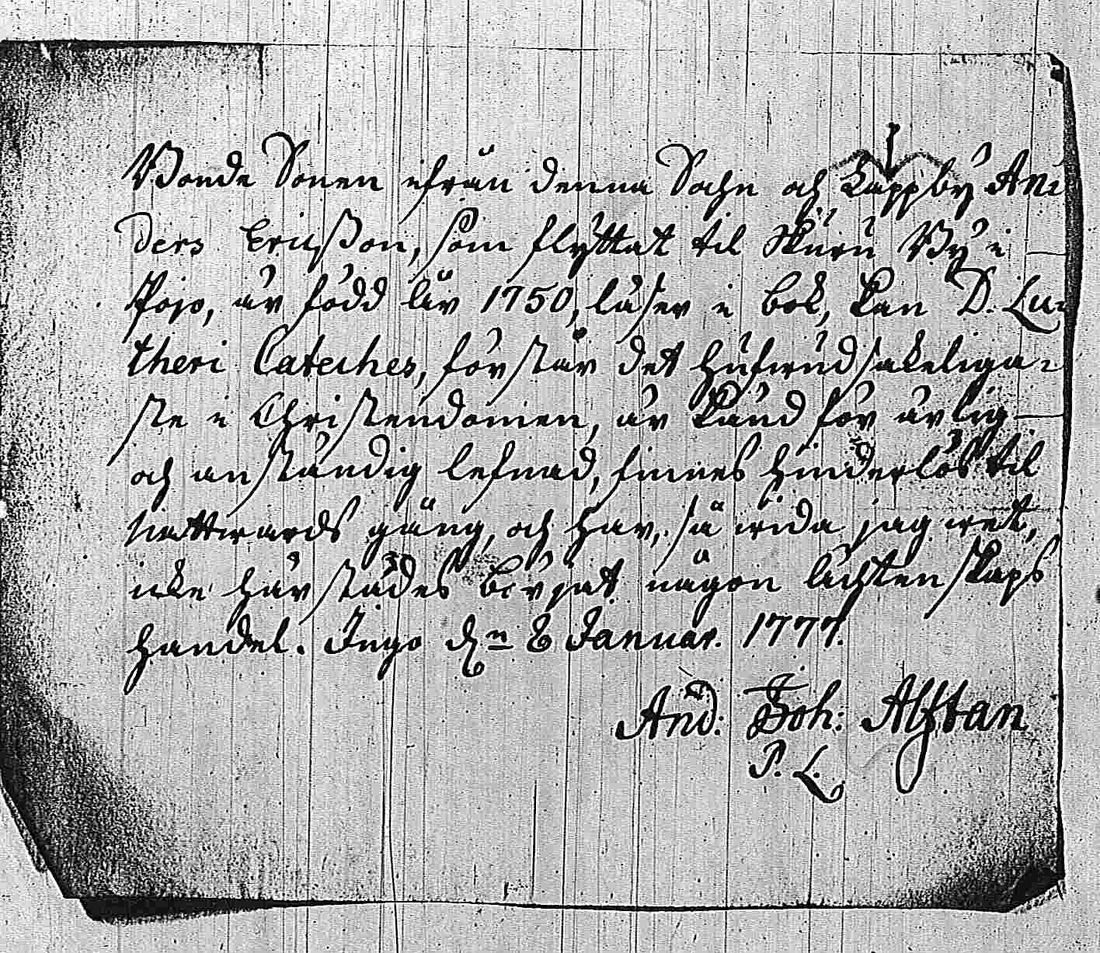 Bonde Sonen ifrån denna Sochn och Kappby An-
ders Ericsson, som flyttat til Skuru By i
Pojo, är född År 1750, läser i bok, kan D. Lu-
theri Cateches, förstår det hufwudsakeliga-
ste i Christendomen, är känd för ärlig
och anständig lefnad, finnes hinderlös til
nattwards gång, och har, så wida jag wet,
icke härstädes börjat någon ächtenskaps
handel. Ingo d:n 8 Januar. 1777.
And: Joh: Alftan
P. L.